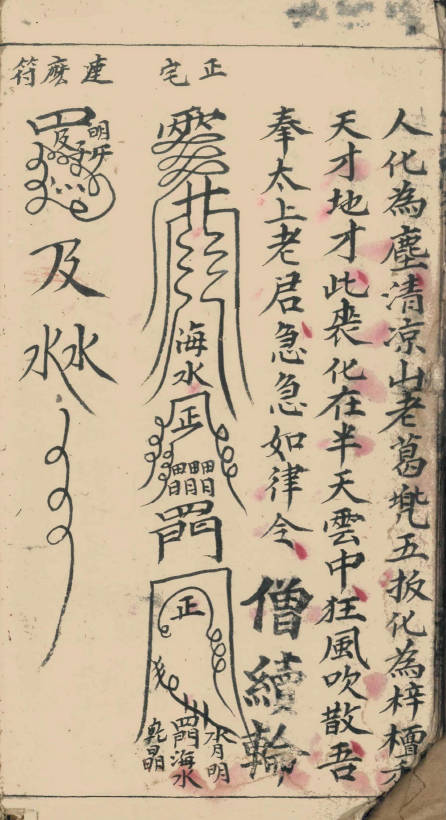 人化為塵清凉山老葛兠五扳化為梓檀木
天才地才此喪化在半天雲中狂風吹散吾
奉太上老君急急如律令
僧續輪
正宅
海水
正
門
正
水月明
門海水
乾晶
連麽符
明
及
水水